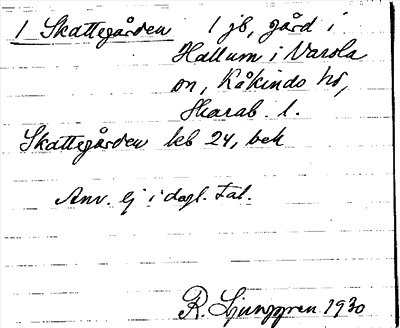 1 Skattegården 1 jb, gård i
Hallum i Varola
sn, Kåkinds hd,
Skarab. l.
Skattegården kb 24, bek
Anv. ej i dagl. tal.
R. Ljunggren 1930